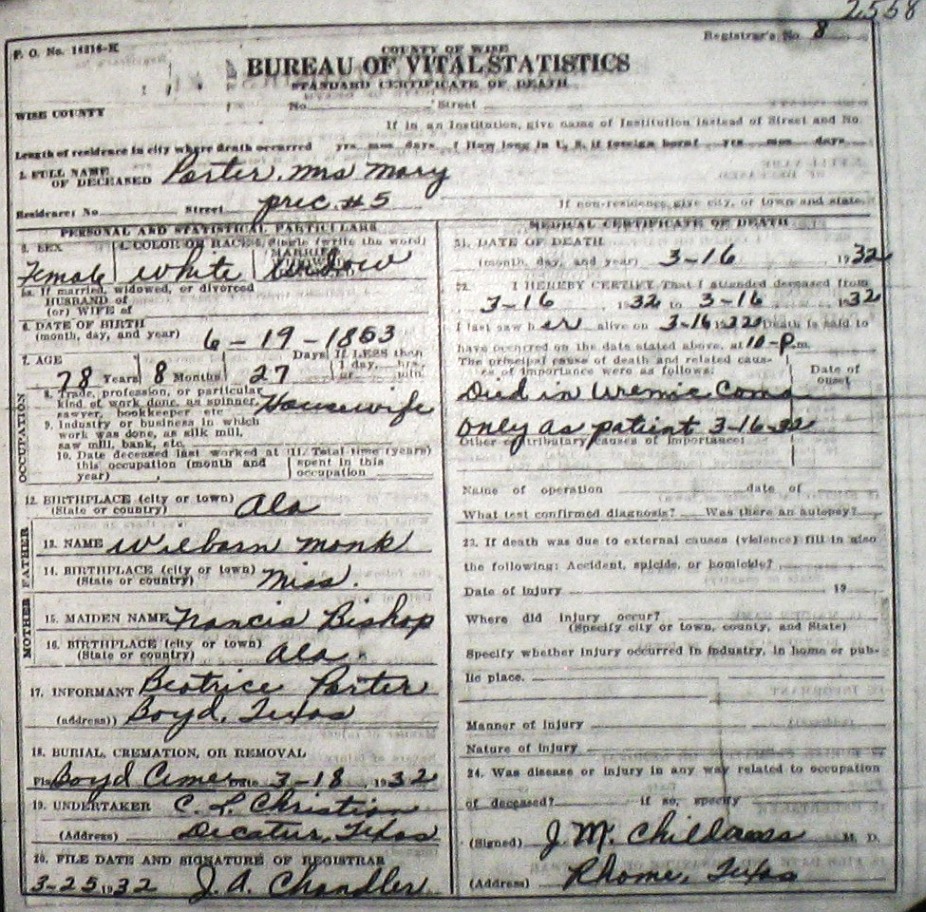 2558
F. O. No. 14316-K
Registrar's No. 8
COUNTY OF WISE
BUREAU OF VITAL STATISTICS
STANDARD CERTIFICATE OF DEATH
No. Street
WISE COUNTY
If in an Institution, give name of Institution instead of Street and No.
Length of residence in city where death occurred yrs. mos. days. How long in U. S. if foreign born? yrs. mos. days.
2. FULL NAME OF DECEASED Porter, Mrs Mary
Residence: No. Street prec. #5 If non-residence, give city, or town and state.
PERSONAL AND STATISTICAL PARTICULARS
3. SEX Female
4. COLOR OR RACE White
5. Single (write the word) MARRIED Widow
5a. If married, widowed, or divorced
HUSBAND of
(or) WIFE of
6. DATE OF BIRTH
(month, day, and year) 6-19-1853
7. AGE 78 Years 8 Months 27 Days If LESS than 1 day, hrs. or min.
OCCUPATION
8. Trade, profession, or particular
kind of work done, as spinner,
sawyer, bookkeeper etc Housewife
9. Industry or business in which
work was done, as silk mill,
saw mill, bank, etc.
10. Date deceased last worked at this occupation (month and year)
11. Total time (years) spent in this occupation
12. BIRTHPLACE (city or town)
(State or country) Ala
FATHER
13. NAME Wilborn Monk
14. BIRTHPLACE (city or town)
(State or country) Miss.
MOTHER
15. MAIDEN NAME Francis Bishop
16. BIRTHPLACE (city or town)
(State or country) Ala
17. INFORMANT Beatrice Porter
(address)) Boyd, Texas
18. BURIAL, CREMATION, OR REMOVAL
Boyd Date 3-18, 1932
19. UNDERTAKER C. L. Christian
(Address) Decatur, Texas
20. FILE DATE AND SIGNATURE OF REGISTRAR
3-25 1932 J. A. Chandler
MEDICAL CERTIFICATE OF DEATH
21. DATE OF DEATH
(month, day, and year) 3-16 1932
22. I HEREBY CERTIFY That I attended deceased from
3-16 1932 to 3-16 1932
I last saw her alive on 3-16 1932 Death is said to
have occurred on the date stated above, at 10-P.m.
The principal cause of death and related causes of importance were as follows: Date of onset
Died in Uremic Coma
only as patient 3-16-32
Other contributary causes of importance:
Name of operation date of
What test confirmed diagnosis? Was there an autopsy?
23. If death was due to external causes (violence) fill in also
the following: Accident, suicide, or homicide?
Date of injury 19
Where did injury occur?
(Specify city or town, county, and State)
Specify whether injury occurred in industry, in home or pub-
lic place.
Manner of injury
Nature of injury
24. Was disease or injury in any way related to occupation
of deceased? if so, specify
(Signed) J. M. Childress M. D.
(Address) Rhome, Texas